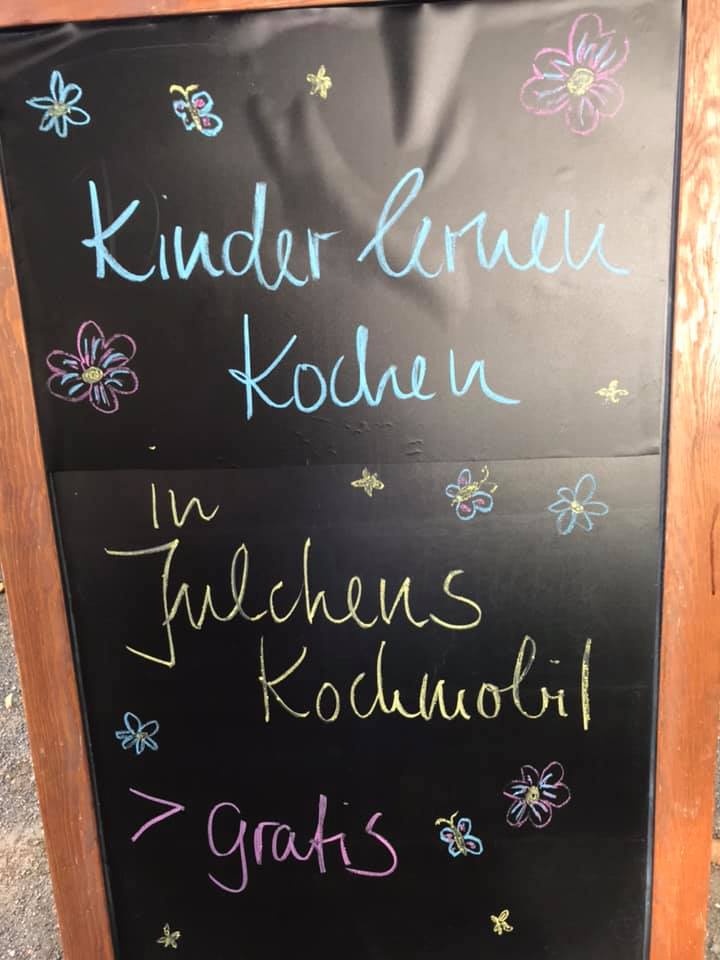 Kinder lernen
Kochen
in
Julchens
Kochmobil
> gratis